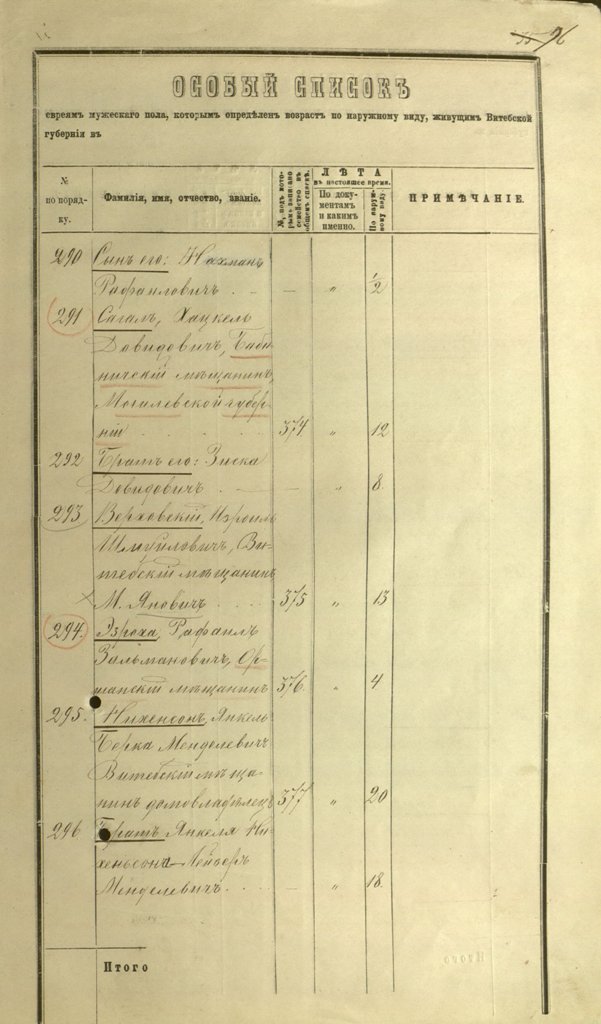 96
ОСОБЫЙ СПИСОКЪ
евреямъ мужескаго пола, которымъ опредѣленъ возрастъ по наружному виду, живущимъ Витебской
губерніи въ
№ по порядку.
Фамилія, имя, отчество, званіе.
№, подъ которымъ записано семейство въ общемъ спискѣ.
ЛѢТА
въ настоящее время.
По документамъ и какимъ именно.
По наружному виду.
ПРИМѢЧАНІЕ.
290 Сынъ его: Нахманъ
Рафаиловичъ . – — " 1/2
291 Сагалъ, Хацкель
Довидовичъ, Баби-
ническій мѣщанинъ,
Могилевской губер-
ніи . . . . 374 " 12
292 Братъ его: Зиска
Довидовичъ . — — " 8.
293 Верховскій, Изроиль
Шмуиловичъ, Ви-
тебскій мѣщанинъ
М. Яновичъ . . . 375 " 13
294. Эзроха, Рафаилъ
Зальмановичъ, Ор-
шанскій мѣщанинъ 376. " 4
295. Нихенсонъ, Янкель
Берка Менделевичъ
Витебскій мѣща-
нинъ домовладѣлецъ 377 " 20
296 Братъ Янкеля Ни-
хеньсона Лейзеръ
Менделевичъ . . . – " 18.
Итого